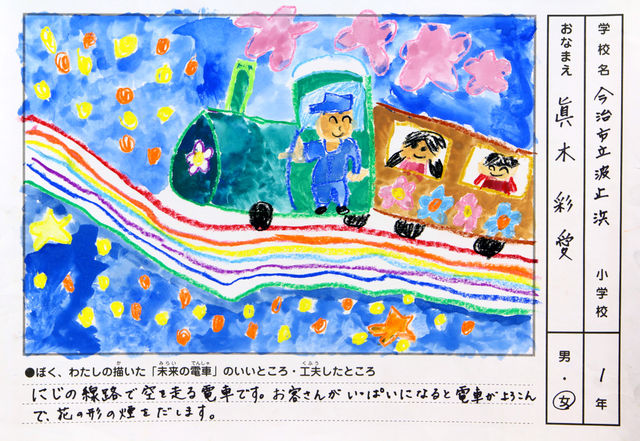 学校名 今治市立波止浜 小学校 1年
おなまえ 眞木彩愛 男・女
●ぼく、わたしの描いた「未来の電車」のいいところ・工夫したところ
にじの線路で空を走る電車です。お客さんがいっぱいになると電車がよろこん
で、花の形の煙をだします。